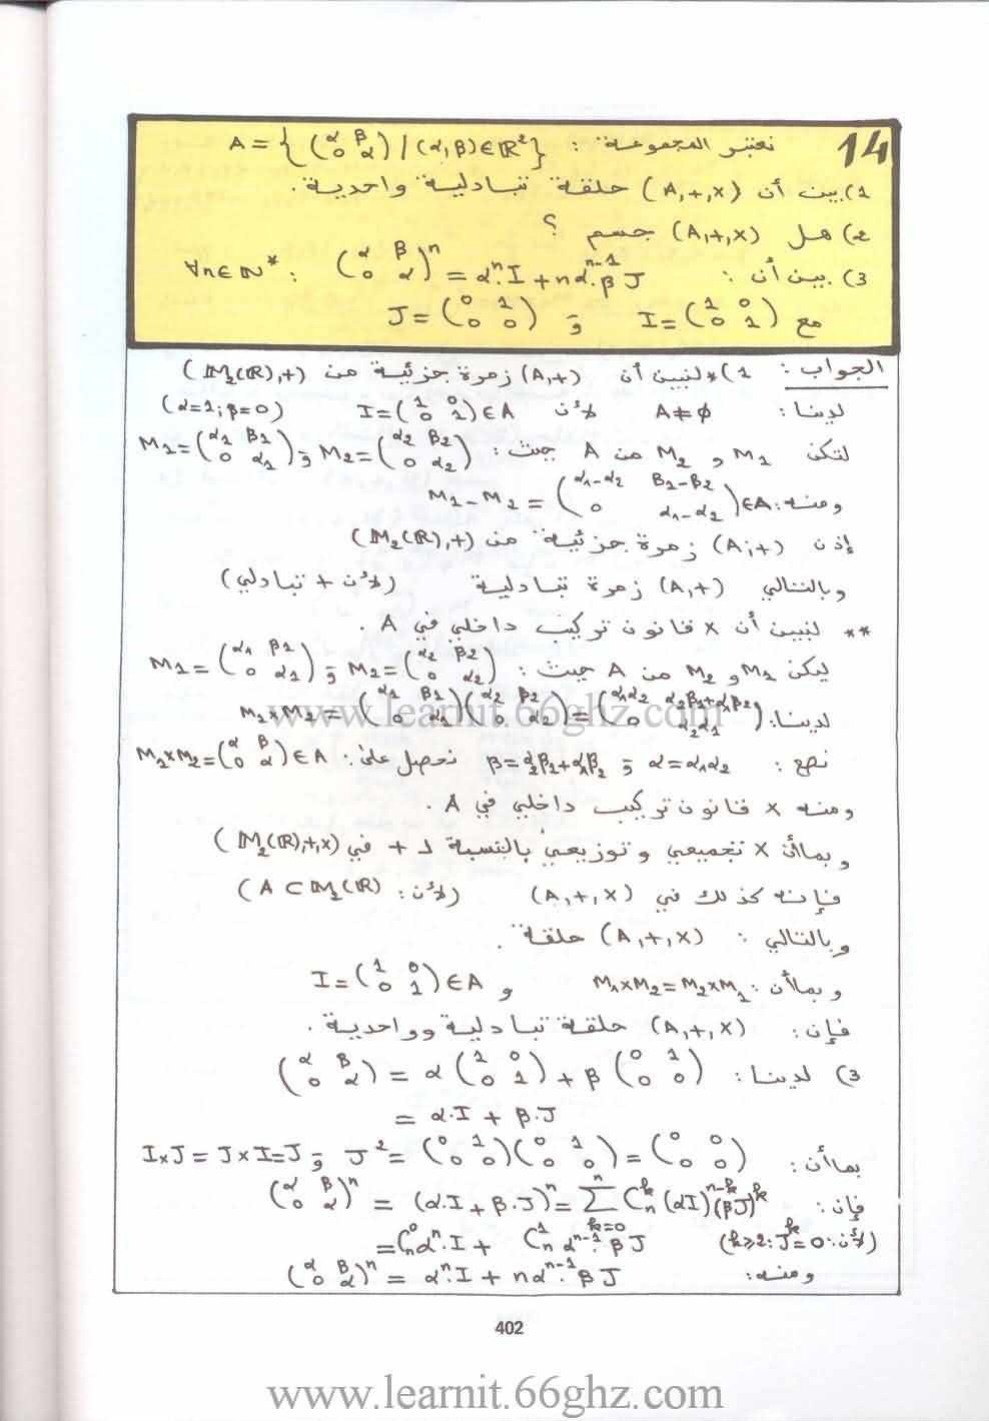 14 نعتبر المجموعة : A = { (α β ; 0 α) / (α,β) ∈ ℝ² }
1) بين أن (A,+,×) حلقة تبادلية واحدية.
2) هل (A,+,×) جسم ؟
3) بين أن : ∀n∈ℕ* : (α β ; 0 α)ⁿ = αⁿ.I + nαⁿ⁻¹.β J
مع I = (1 0 ; 0 1) و J = (0 1 ; 0 0)
الجواب : 1) * لنبين أن (A,+) زمرة جزئية من (M₂(ℝ),+)
لدينا : A ≠ ∅ لأن I = (1 0 ; 0 1) ∈ A (α=1 ; β=0)
لتكن M₁ و M₂ من A حيث : M₂ = (α₂ β₂ ; 0 α₂) و M₁ = (α₁ β₁ ; 0 α₁)
ومنه : M₁ - M₂ = (α₁-α₂ β₁-β₂ ; 0 α₁-α₂) ∈ A
إذن (A,+) زمرة جزئية من (M₂(ℝ),+)
وبالتالي (A,+) زمرة تبادلية (لأن + تبادلي)
** لنبين أن × قانون تركيب داخلي في A .
ليكن M₁ و M₂ من A حيث : M₂ = (α₂ β₂ ; 0 α₂) و M₁ = (α₁ β₁ ; 0 α₁)
لدينا : M₁×M₂ = (α₁ β₁ ; 0 α₁)(α₂ β₂ ; 0 α₂) = (α₁α₂ α₂β₁+α₁β₂ ; 0 α₂α₁)
نضع : α = α₁α₂ و β = α₂β₁+α₁β₂ نحصل على : M₁×M₂ = (α β ; 0 α) ∈ A
ومنه × قانون تركيب داخلي في A .
وبما أن × تجميعي وتوزيعي بالنسبة لـ + في (M₂(ℝ),+,×)
فإنه كذلك في (A,+,×) (لأن : A ⊂ M₂(ℝ))
وبالتالي : (A,+,×) حلقة .
وبما أن : M₁×M₂ = M₂×M₁ و I = (1 0 ; 0 1) ∈ A
فإن : (A,+,×) حلقة تبادلية وواحدية .
3) لدينا : (α β ; 0 α) = α (1 0 ; 0 1) + β (0 1 ; 0 0)
= α.I + β.J
بما أن : J² = (0 1 ; 0 0)(0 1 ; 0 0) = (0 0 ; 0 0) و I×J = J×I = J
فإن : (α β ; 0 α)ⁿ = (α.I + β.J)ⁿ = Σₖ₌₀ⁿ Cₙᵏ (αI)ⁿ⁻ᵏ (βJ)ᵏ
= Cₙ⁰ αⁿ.I + Cₙ¹ αⁿ⁻¹.βJ (لأن : k≥2 : Jᵏ = 0)
ومنه : (α β ; 0 α)ⁿ = αⁿ.I + nαⁿ⁻¹.βJ
402
www.learnit.66ghz.com
www.learnit.66ghz.com